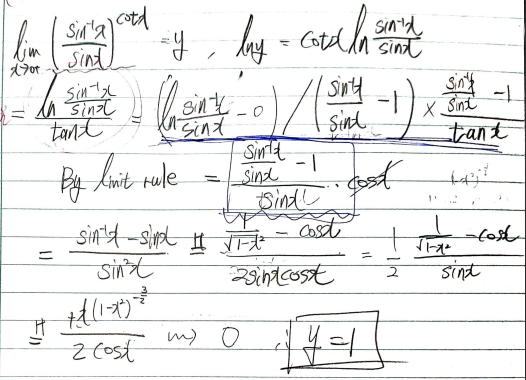 lim x→0+ (sin⁻¹x / sinx)^cotx = y , lny = cotx ln sin⁻¹x / sinx
= ln (sin⁻¹x / sinx) / tanx = (ln sin⁻¹x / sinx - 0) / (sin⁻¹x / sinx - 1) × (sin⁻¹x / sinx - 1) / tanx
By limit rule = (sin⁻¹x / sinx - 1) / sinx · cosx
= (sin⁻¹x - sinx) / sin²x =ᴴ (1/√(1-x²) - cosx) / 2sinxcosx = 1/2 (1/√(1-x²) - cosx) / sinx
=ᴴ +x(1-x²)^(-3/2) / 2cosx ⇝ 0 ∴ y = 1